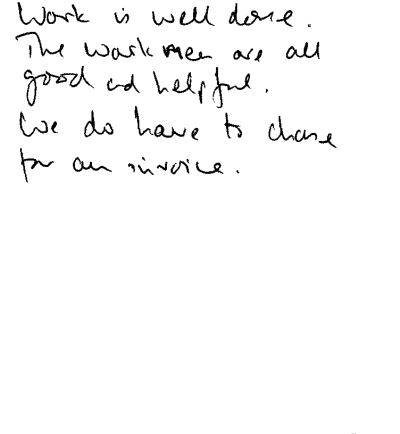 Work is well done.
The workmen are all
good and helpful.
We do have to chase
for an invoice.